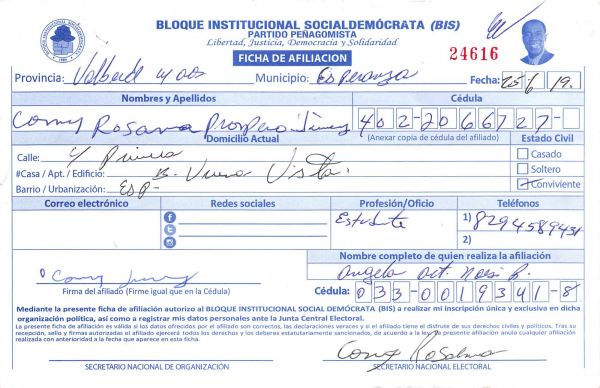 BLOQUE INSTITUCIONAL SOCIALDEMÓCRATA (BIS)
PARTIDO PEÑAGOMISTA
Libertad, Justicia, Democracia y Solidaridad
FICHA DE AFILIACION
24616
Provincia: Valverde Mao
Municipio: Esperanza
Fecha: 25/6/19.
Nombres y Apellidos
Cédula
Rosanna Prospero
402-2066727-
Domicilio Actual
(Anexar copia de cédula del afiliado)
Estado Civil
Calle: Primera
Casado
#Casa / Apt. / Edificio: B. Buena Vista.
Soltero
Barrio / Urbanización: Esp-
Conviviente
Correo electrónico
Redes sociales
Profesión/Oficio
Teléfonos
Estudiante
1) 8294589431
2)
Nombre completo de quien realiza la afiliación
Angela
Firma del afiliado (Firme igual que en la Cédula)
Cédula: 033-0019341-8
Mediante la presente ficha de afiliación autorizo al BLOQUE INSTITUCIONAL SOCIAL DEMÓCRATA (BIS) a realizar mi inscripción única y exclusiva en dicha
organización política, así como a registrar mis datos personales ante la Junta Central Electoral.
La presente ficha de afiliación es válida si los datos ofrecidos por el afiliado son correctos, las declaraciones veraces y si el afiliado tiene el disfrute de sus derechos civiles y políticos. Tras su
recepción, sello y firmas autorizadas el afiliado ejercerá todos los derechos y los deberes estatutariamente sancionados, de acuerdo a la ley. La presente afiliación anula cualquier afiliación
realizada con anterioridad a la fecha que aparece en esta ficha.
SECRETARIO NACIONAL DE ORGANIZACIÓN
SECRETARIO NACIONAL ELECTORAL